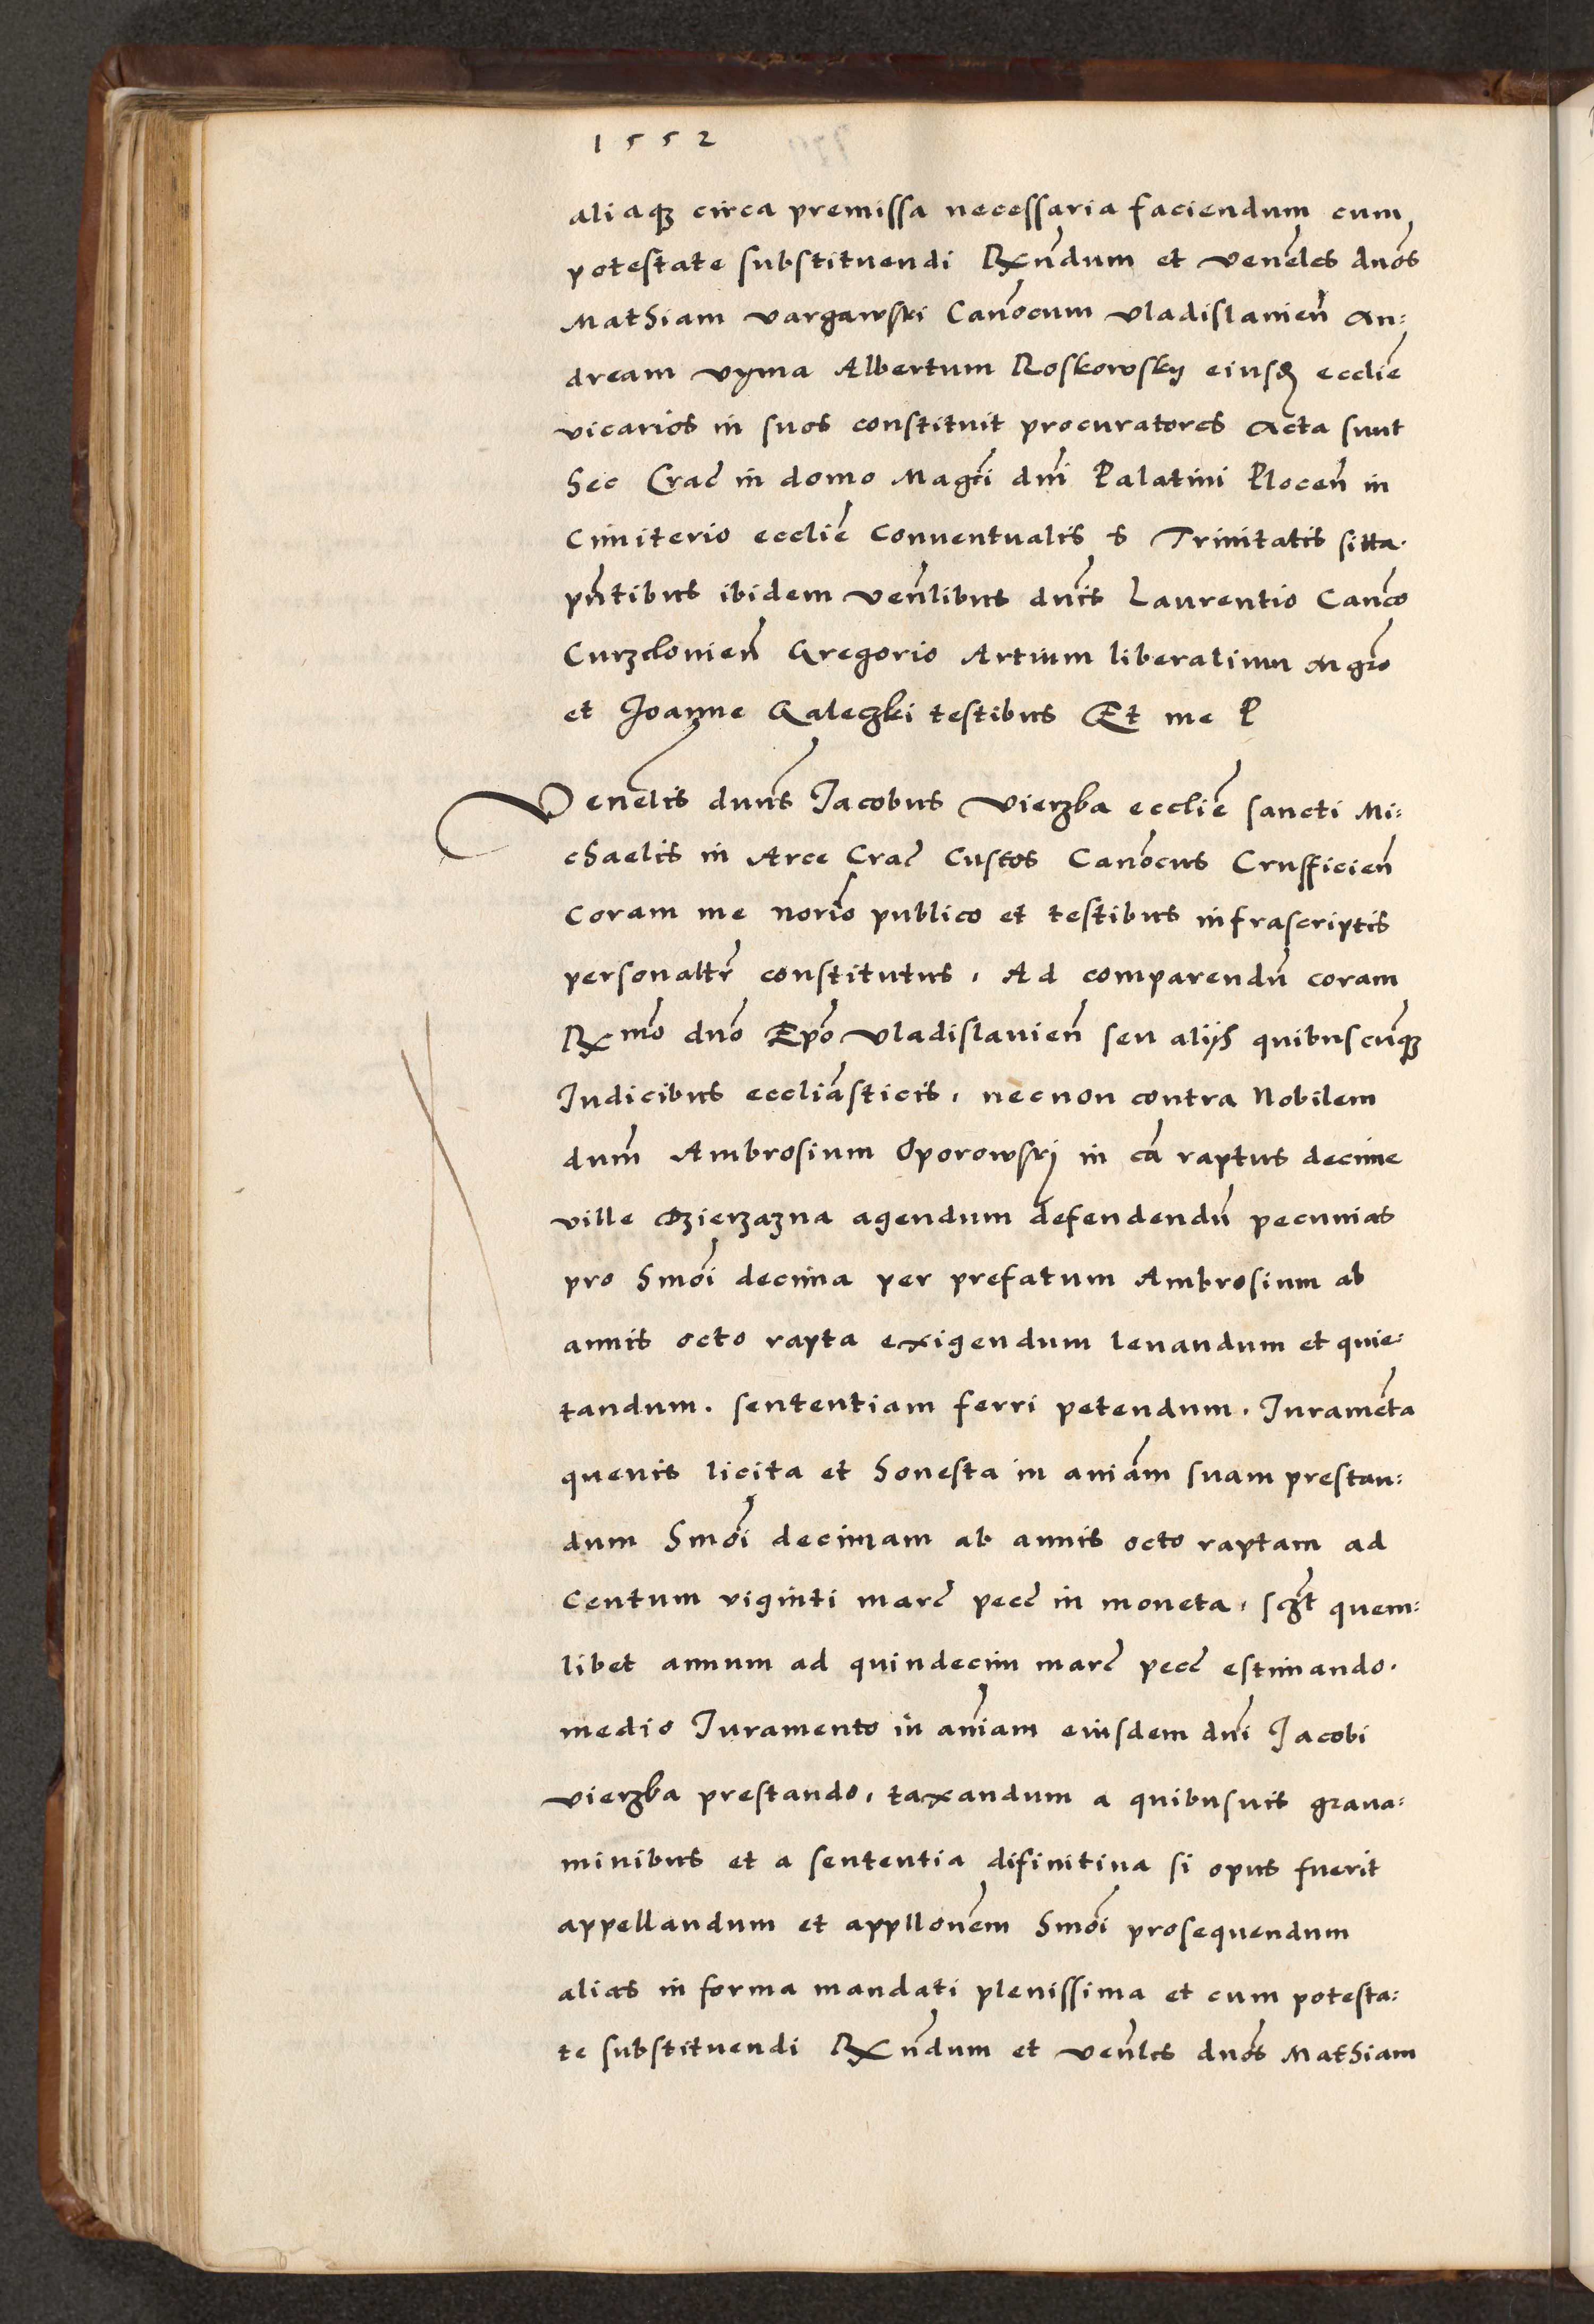 1552
aliaqȝ circa premissa necessaria faciendum cum
potestate substituendi Rx̃ndum et veneles duos
Mathiam vargawski Canocum vladislauien̄ An:
dream vyma Albertum Roskowskij eiusđ ecclie
vicarios in suos constituit procuratores Acta sunt
hec Crac̄ in domo Magci dni Palatini Plocen̄ in
Cimiterio ecclie Conuentualis S Trinitatis sitta.
pntibus ibidem venlibus dnis Laurentio Canco
Curzelouien̄ Gregorio Artium liberalium Mgro
et Joanne Galeczki testibus Et me P
Venelis dnus Jacobus vierzba ecclie sancti Mi:
chaelis in Arce Crac̄ Custos Canocus Crusficien̄
Coram me norio publico et testibus infrascriptis
personaltr constitutus, Ad comparendū coram
Rx̃mo dno Epo vladislauien̄ seu alijs quibuscūqȝ
Judicibus eccliasticis, necnon contra Nobilem
dnum Ambrosium Oporowskj in ca raptus decime
ville Czierzazna agendum defendendū pecunias
pro hmoi decima per prefatum Ambrosium ab
annis octo rapta exigendum leuandum et quie:
tandum. sententiam ferri petendum. Juramēta
queuis licita et honesta in aniam suam prestan:
dum hmoi decimam ab annis octo raptam ad
Centum viginti marc̄ pecc̄ in moneta, sczt quem:
libet annum ad quindecim marc̄ pecc̄ estimando.
medio Juramento in aniam eiusdem dni Jacobi
vierzba prestando, taxandum a quibusuis graua:
minibus et a sententia difinitiua si opus fuerit
appellandum et appllonem hmoi prosequendum
alias in forma mandati plenissima et cum potesta:
te substituendi Rx̃ndum et venles dnos Mathiam